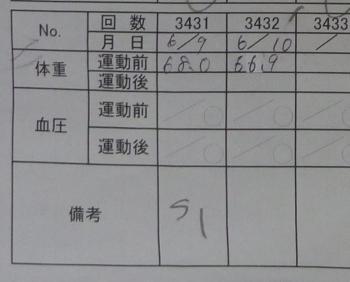 No. 回数 3431 3432 3433
月日 6/9 6/10 /
体重 運動前 68.0 66.9
運動後
血圧 運動前 / /
運動後 / /
備考 51